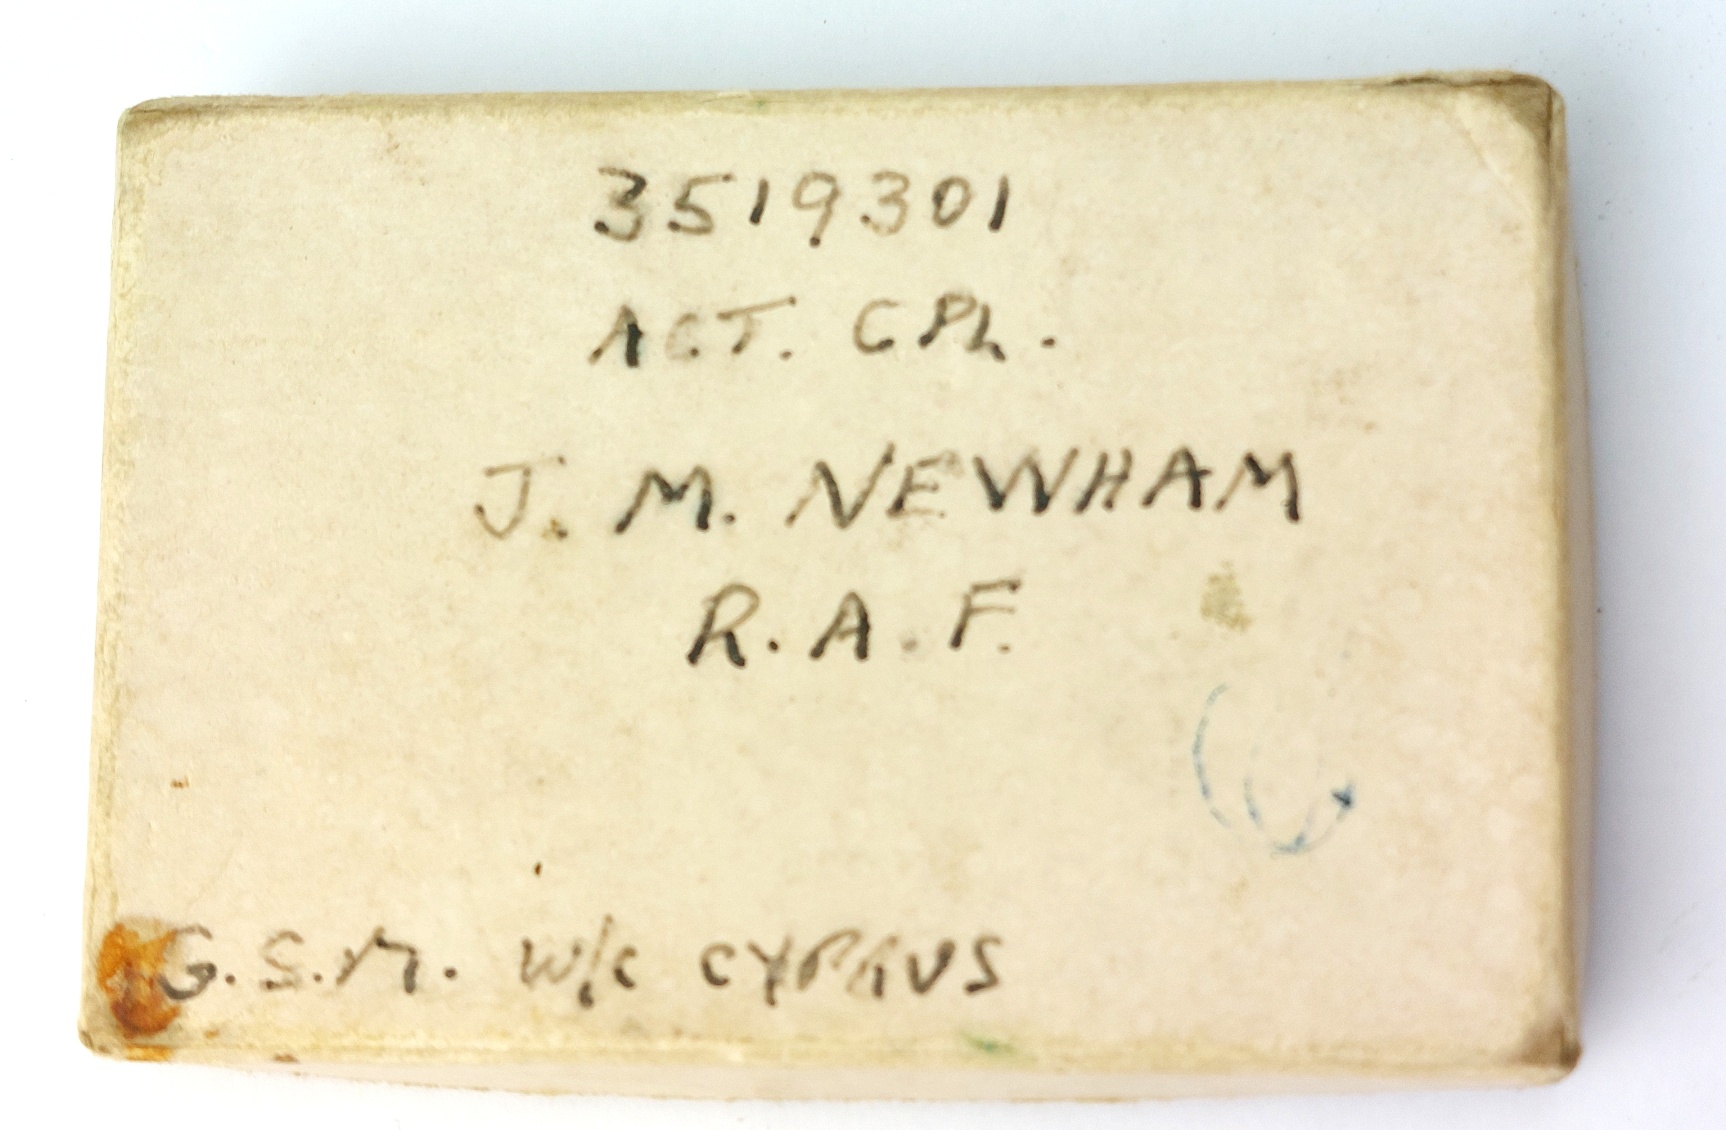 3519301
ACT. CPL.
J. M. NEWHAM
R. A. F.
G. S. M. W/C CYPRUS